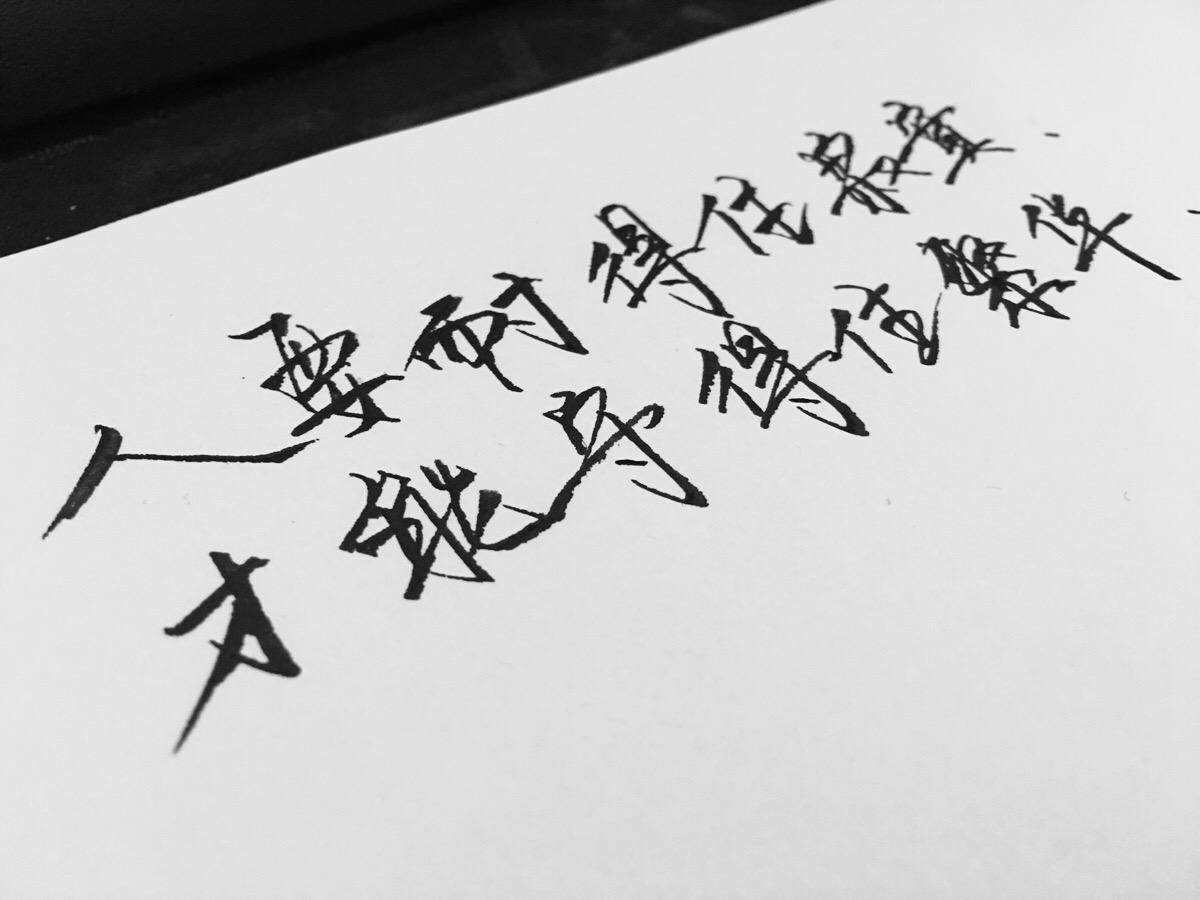 人要耐得住寂寞,
才能守得住繁华